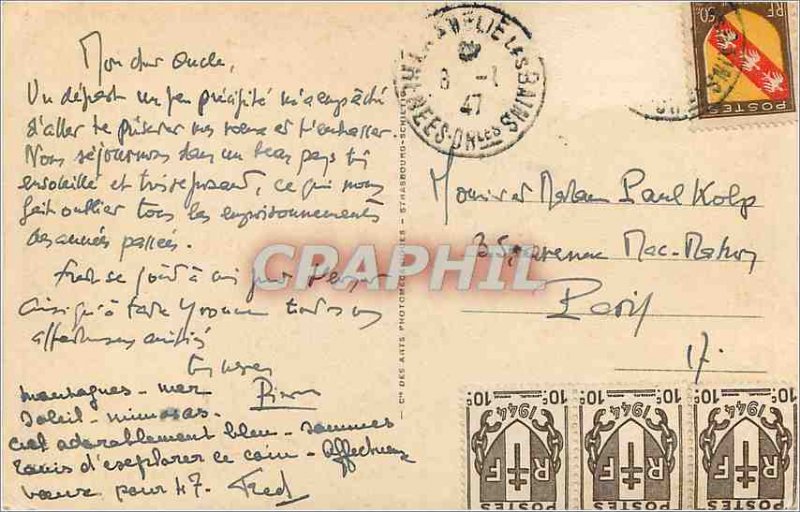 Mon cher Oncle,
Un départ un peu précipité m'a empêché
d'aller te présenter nos voeux et t'embrasser.
Nous séjournons dans un beau pays
ensoleillé et très reposant, ce qui nous
fait oublier tous les emprisonnements
des années passées.
Fred se joint à moi pour
ainsi qu'à tante Yvonne toutes nos
affectueuses amitiés
montagnes - mer
Soleil - mimosas -
ciel adorablement bleu - sommes
ravis d'explorer ce coin - affectueux
voeux pour 47. Fred
AMELIE LES BAINS
8 - 1
47
PYRENEES-ORles
50c
RF
POSTES
Monsieur et Madame Paul Kolp
35, avenue Mac-Mahon
Paris
17.
Cie DES ARTS PHOTOMECANIQUES - STRASBOURG-SCHILTIGHEIM
CRAPHIL
10c 10c 10c 10c 10c 10c
1944 1944 1944
RF RF RF
POSTES POSTES POSTES